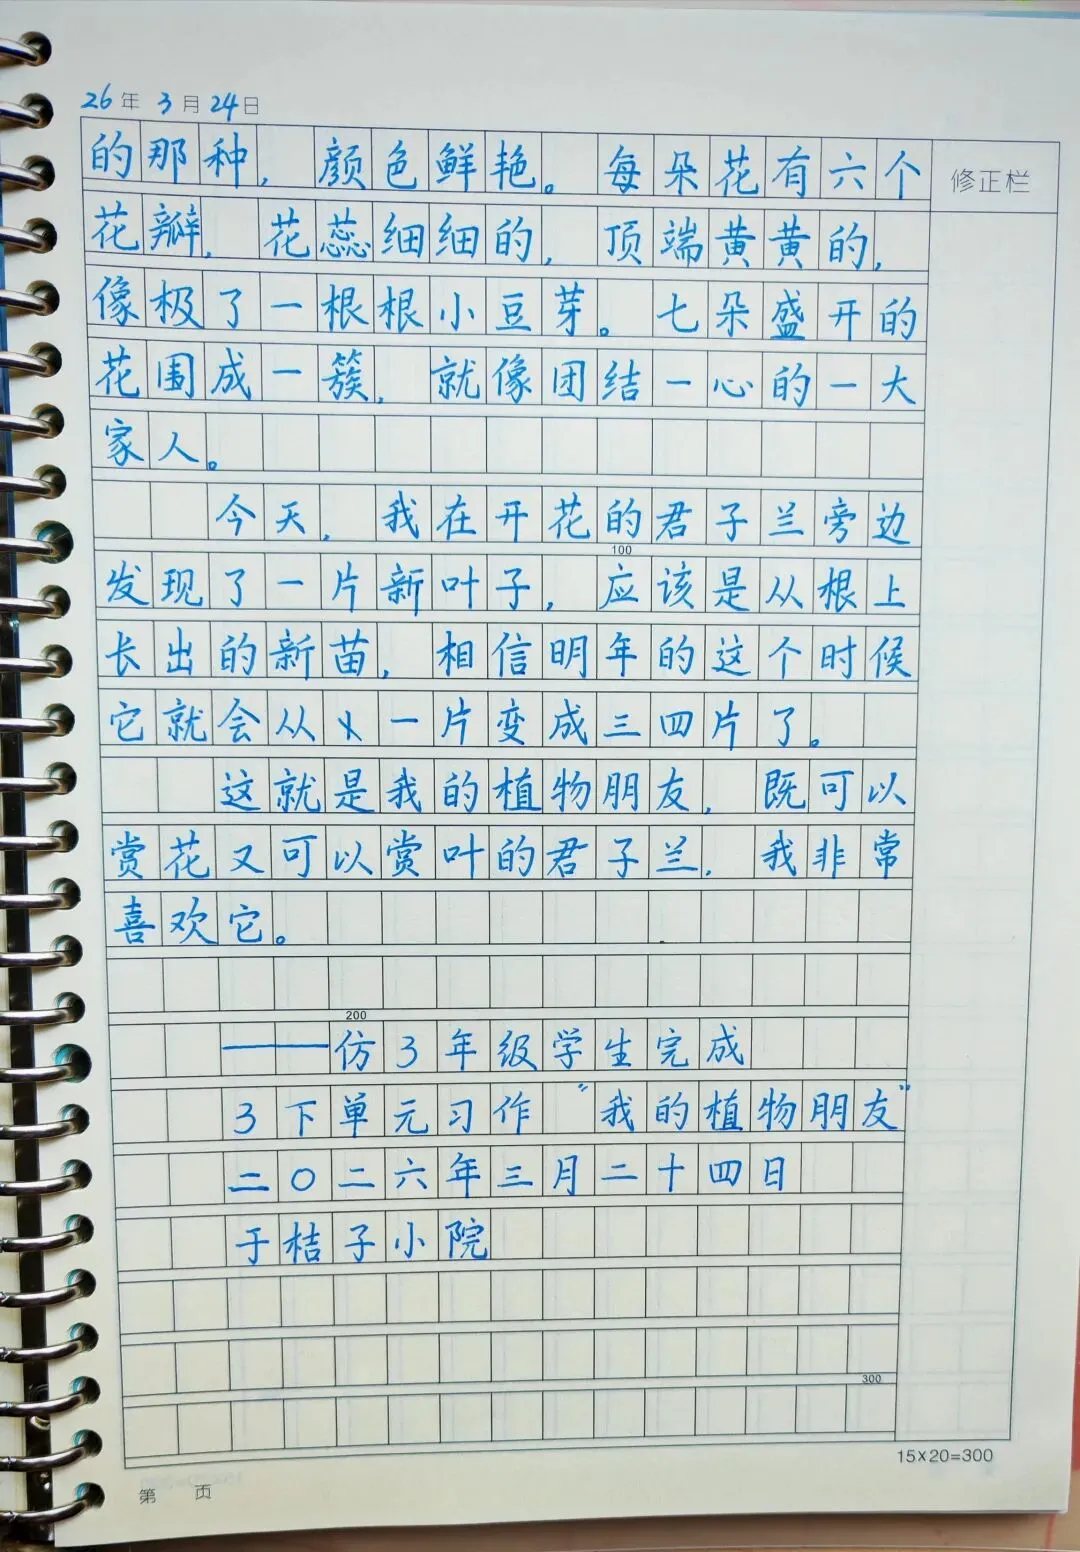 26年 3月 24日
的那种，颜色鲜艳。每朵花有六个
修正栏
花瓣，花蕊细细的，顶端黄黄的，
像极了一根根小豆芽。七朵盛开的
花围成一簇，就像团结一心的一大
家人。
今天，我在开花的君子兰旁边
100
发现了一片新叶子，应该是从根上
长出的新苗，相信明年的这个时候
它就会从一片变成三四片了。
这就是我的植物朋友，既可以
赏花又可以赏叶的君子兰，我非常
喜欢它。
200
——仿3年级学生完成
3下单元习作“我的植物朋友”
二〇二六年三月二十四日
于桔子小院
300
15×20=300
第 页